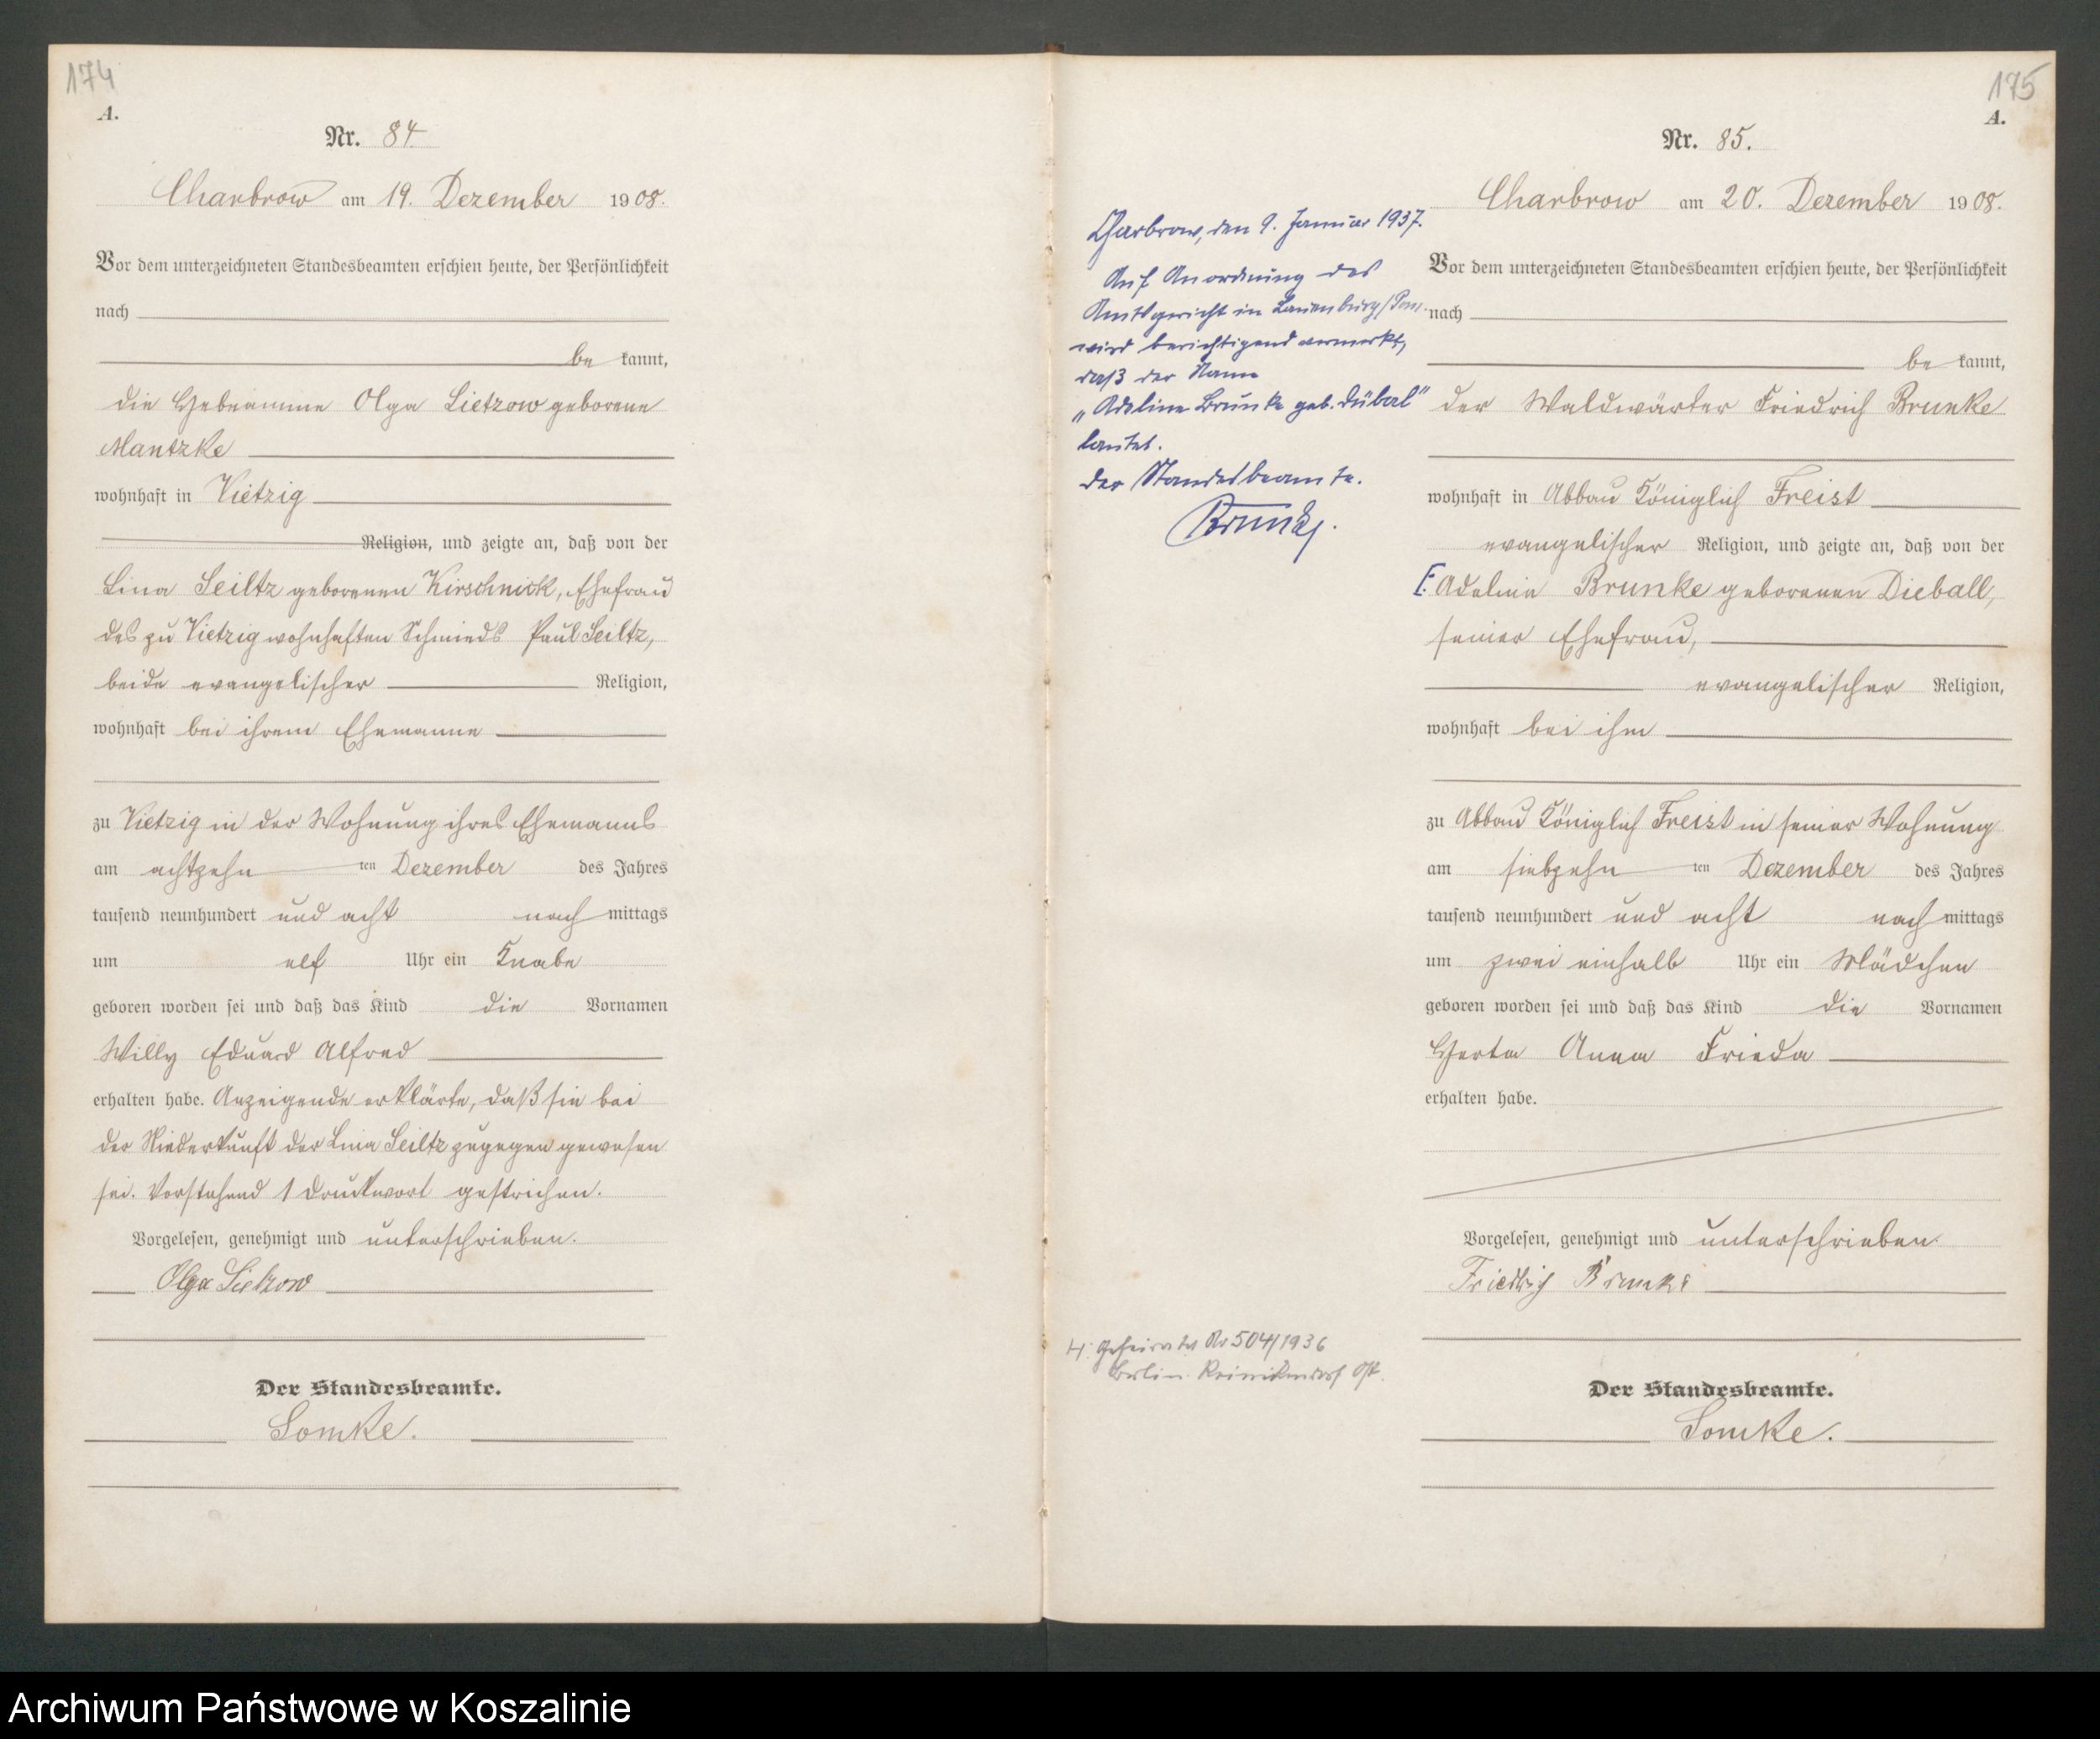 174
A.
Nr. 84
Charbrow am 19. Dezember 1908.
Vor dem unterzeichneten Standesbeamten erschien heute, der Persönlichkeit
nach
be kannt,
die Hebeamme Olga Lietzow geborene
Mantzke
wohnhaft in Vietzig
Religion, und zeigte an, daß von der
Lina Seiltz geborenen Kirschnick, Ehefrau
des zu Vietzig wohnhaften Schmieds Paul Seiltz,
beide evangelischer Religion,
wohnhaft bei ihrem Ehemanne
zu Vietzig in der Wohnung ihres Ehemanns
am achtzehn ten Dezember des Jahres
tausend neunhundert und acht nach mittags
um elf Uhr ein Knabe
geboren worden sei und daß das Kind die Vornamen
Willy Eduard Alfred
erhalten habe. Anzeigende erklärte, daß sie bei
der Niederkunft der Lina Seiltz zugegen gewesen
sei. Vorstehend 1 Druckwort gestrichen.
Vorgelesen, genehmigt und unterschrieben.
Olga Lietzow
Der Standesbeamte.
Lomke.
175
A.
Nr. 85.
Charbrow am 20. Dezember 1908.
Vor dem unterzeichneten Standesbeamten erschien heute, der Persönlichkeit
nach
be kannt,
der Waldwärter Friedrich Brunke
wohnhaft in Abbau Königlich Freist
evangelischer Religion, und zeigte an, daß von der
Adeline Brunke geborenen Dieball,
seiner Ehefrau,
evangelischer Religion,
wohnhaft bei ihm
zu Abbau Königlich Freist in seiner Wohnung
am siebzehn ten Dezember des Jahres
tausend neunhundert und acht nach mittags
um zwei einhalb Uhr ein Mädchen
geboren worden sei und daß das Kind die Vornamen
Herta Anna Frieda
erhalten habe.
Vorgelesen, genehmigt und unterschrieben.
Friedrich Brunke
Der Standesbeamte.
Lomke.
Charbrow, den 9. Januar 1937.
Auf Anordnung des
Amtsgericht in Lauenburg/Pom.
wird berichtigend vermerkt,
daß der Name
„Adeline Brunke geb. Dübal"
lautet.
Der Standesbeamte.
H: Geheiratet Nr 504/1936
Berlin-Reinickendorf Ost.
Archiwum Państwowe w Koszalinie